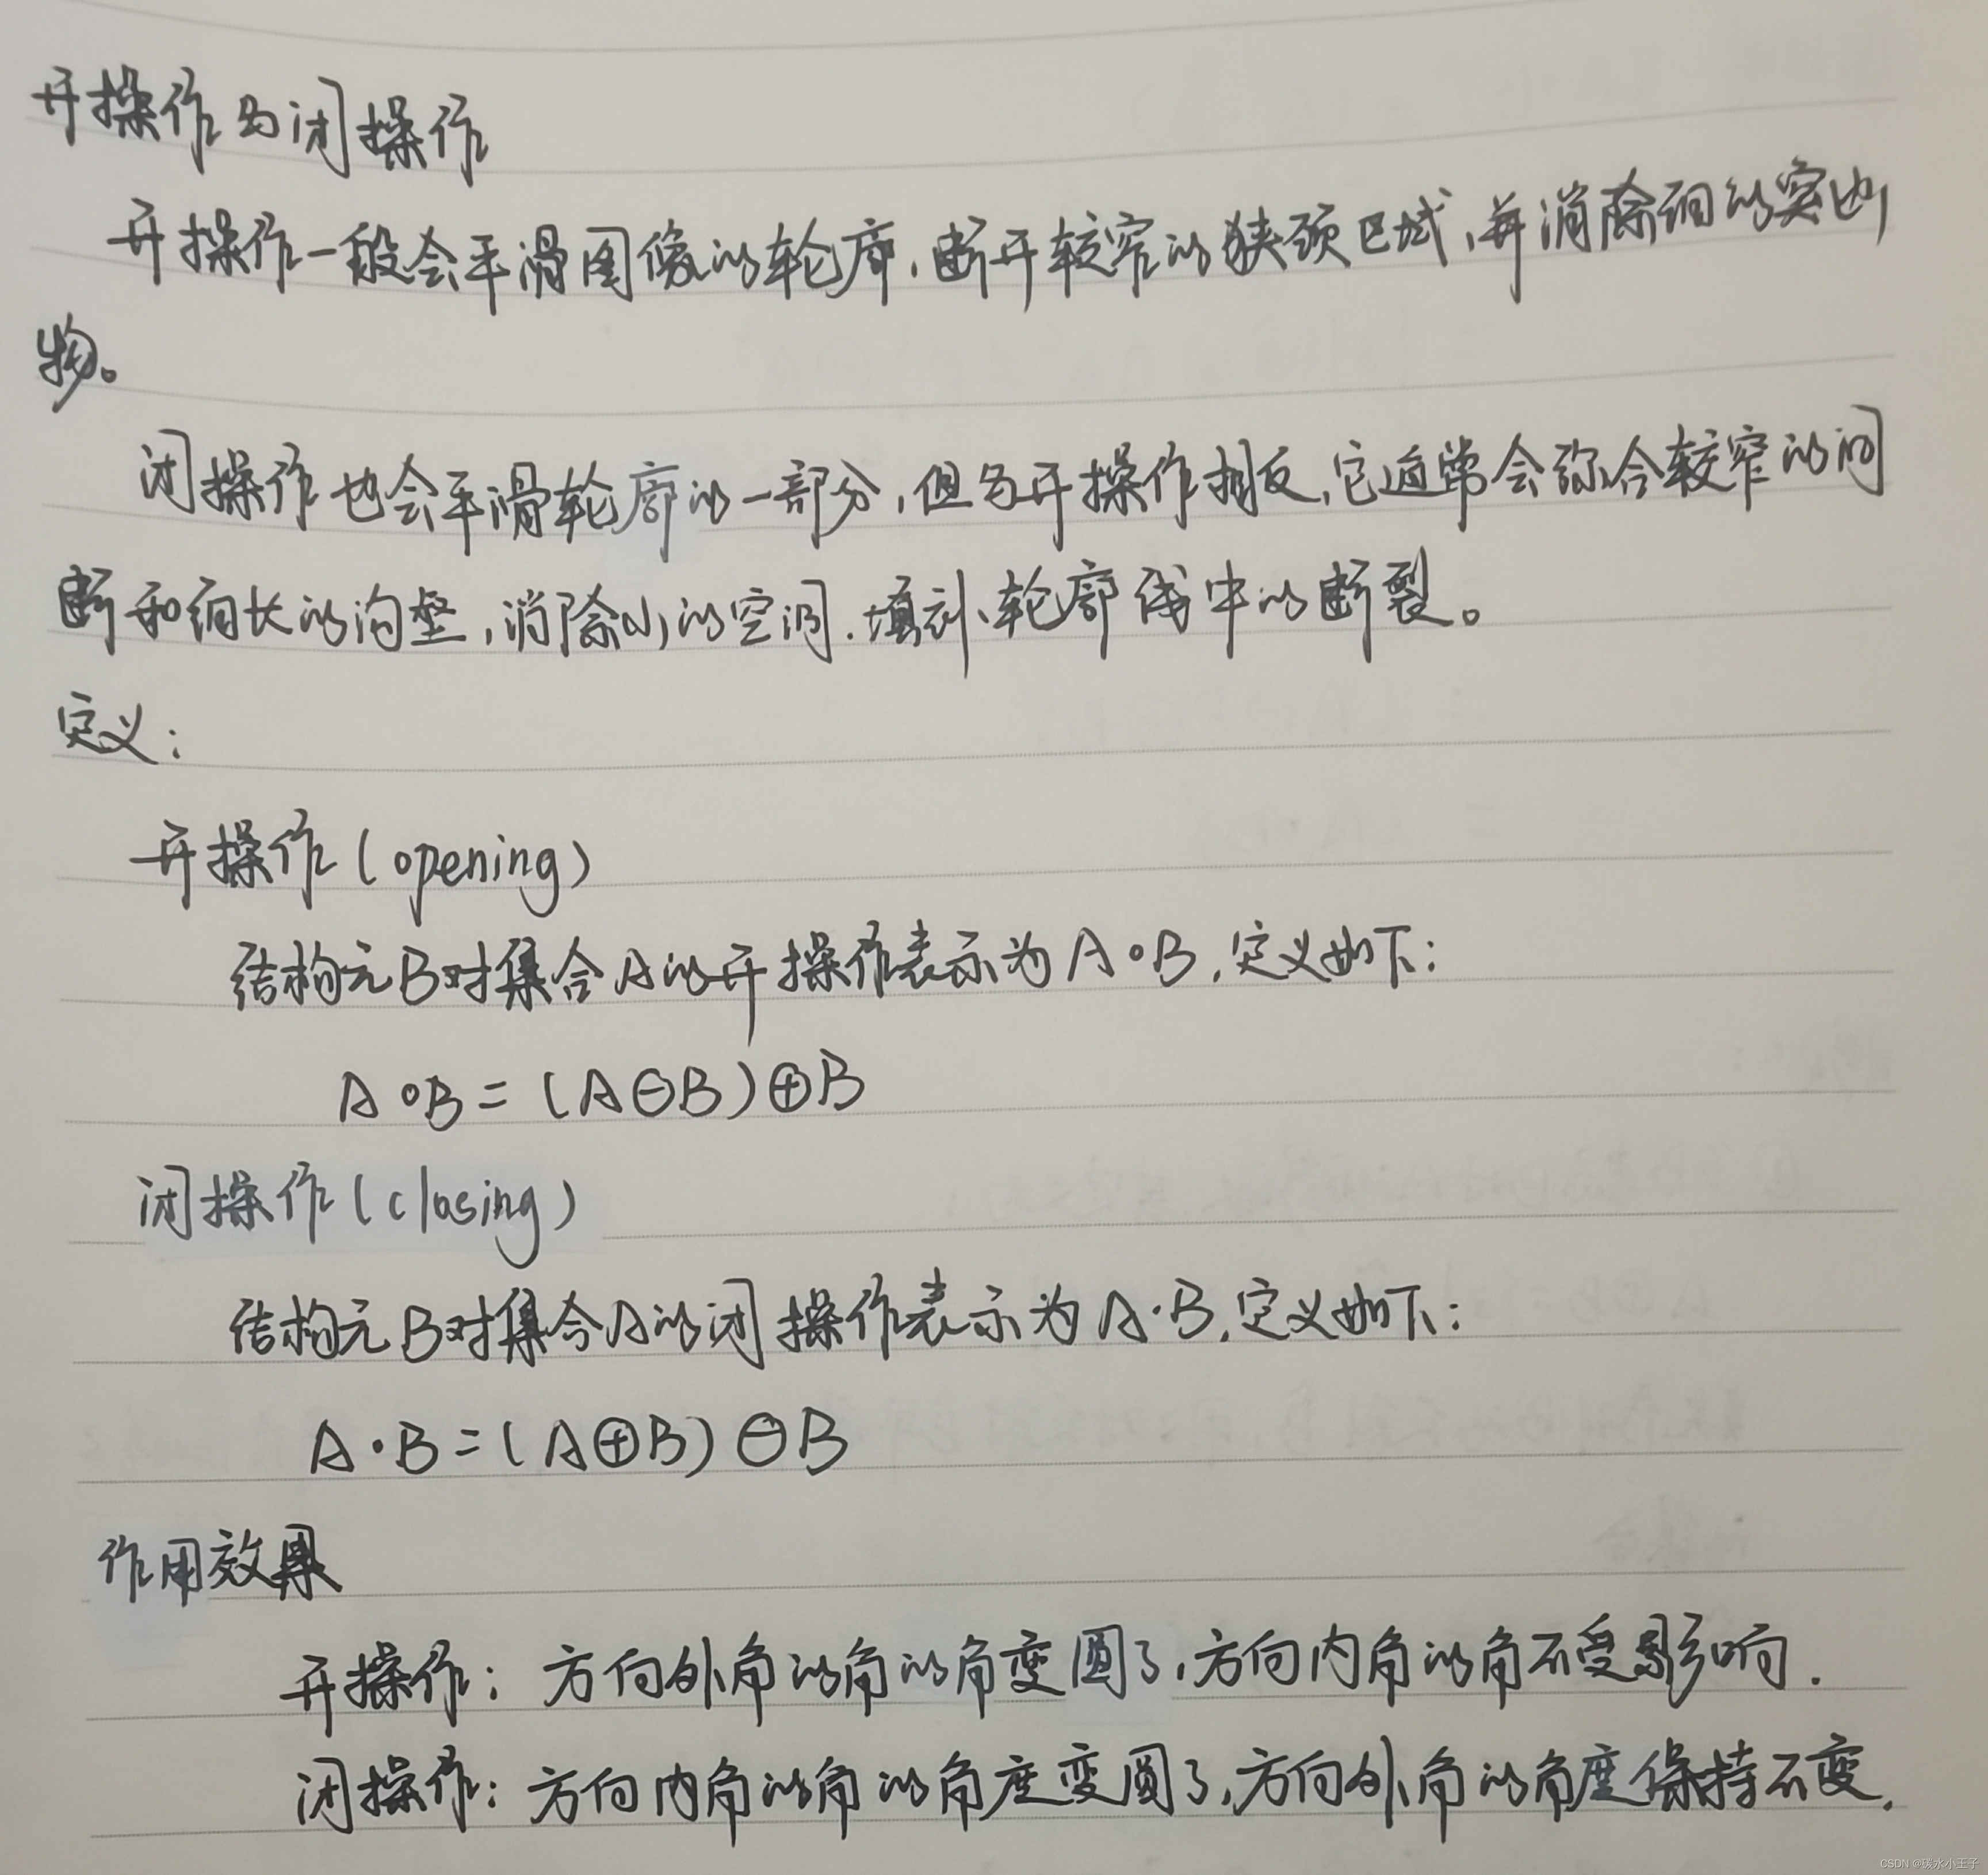 开操作与闭操作
开操作一般会平滑图像的轮廓,断开较窄的狭颈区域,并消除细的突出
物。
闭操作也会平滑轮廓的一部分,但与开操作相反,它通常会弥合较窄的间
断和细长的沟壑,消除小的空洞.填补轮廓线中的断裂。
定义:
开操作(opening)
结构元B对集合A的开操作表示为A∘B,定义如下:
A∘B=(A⊖B)⊕B
闭操作(closing)
结构元B对集合A的闭操作表示为A·B,定义如下:
A·B=(A⊕B)⊖B
作用效果
开操作:方向外角的角的角变圆了,方向内角的角不受影响.
闭操作:方向内角的角的角度变圆了,方向外角的角度保持不变.
CSDN @碳水小王子